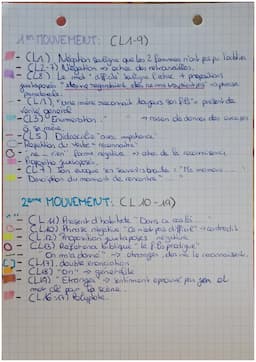 1er MOUVEMENT: (L1-9)
- (L1) Négation souligne que les 2 femmes n'ont pas pu l'oublier
- (L2-7) Négation → échec des retrouvailles.
- (L8) Le mot "difficile" souligne l'échec + propositions
juxtaposées → phrase
- (L1) "une mère reconnaît toujours son fils" → présent de
vérité générale
- (L3) "Énumération → raison de donner des excuses
à sa mère.
- (L5) Didascalie "avec impatience"
- Répétition du verbe "reconnaître"
- "ne - rien" forme négative → abs. de la reconnaissance.
- Propositions juxtaposées.
- (L9) Son évoque les souvenirs "Ma mémoire"
- Description du moment de rencontre
2ème MOUVEMENT: (L10-19)
- (L11) Présent d'habitude "Dans ce café
- (L10) Phrase négative "Ce n'est pas difficile" → contredit
- (L12) Proposition juxtaposées négative
- (L13) Référence biblique "le fils prodigue"
"On m'a donné" → étranger, donne la reconnaissance.
- (L17) double énonciation
- (L18) "On" → généralité
- (L19) "Étranger" → sentiment éprouvé par Jan et
mot clé pour la scène.
- (L16-17) Polyptote.